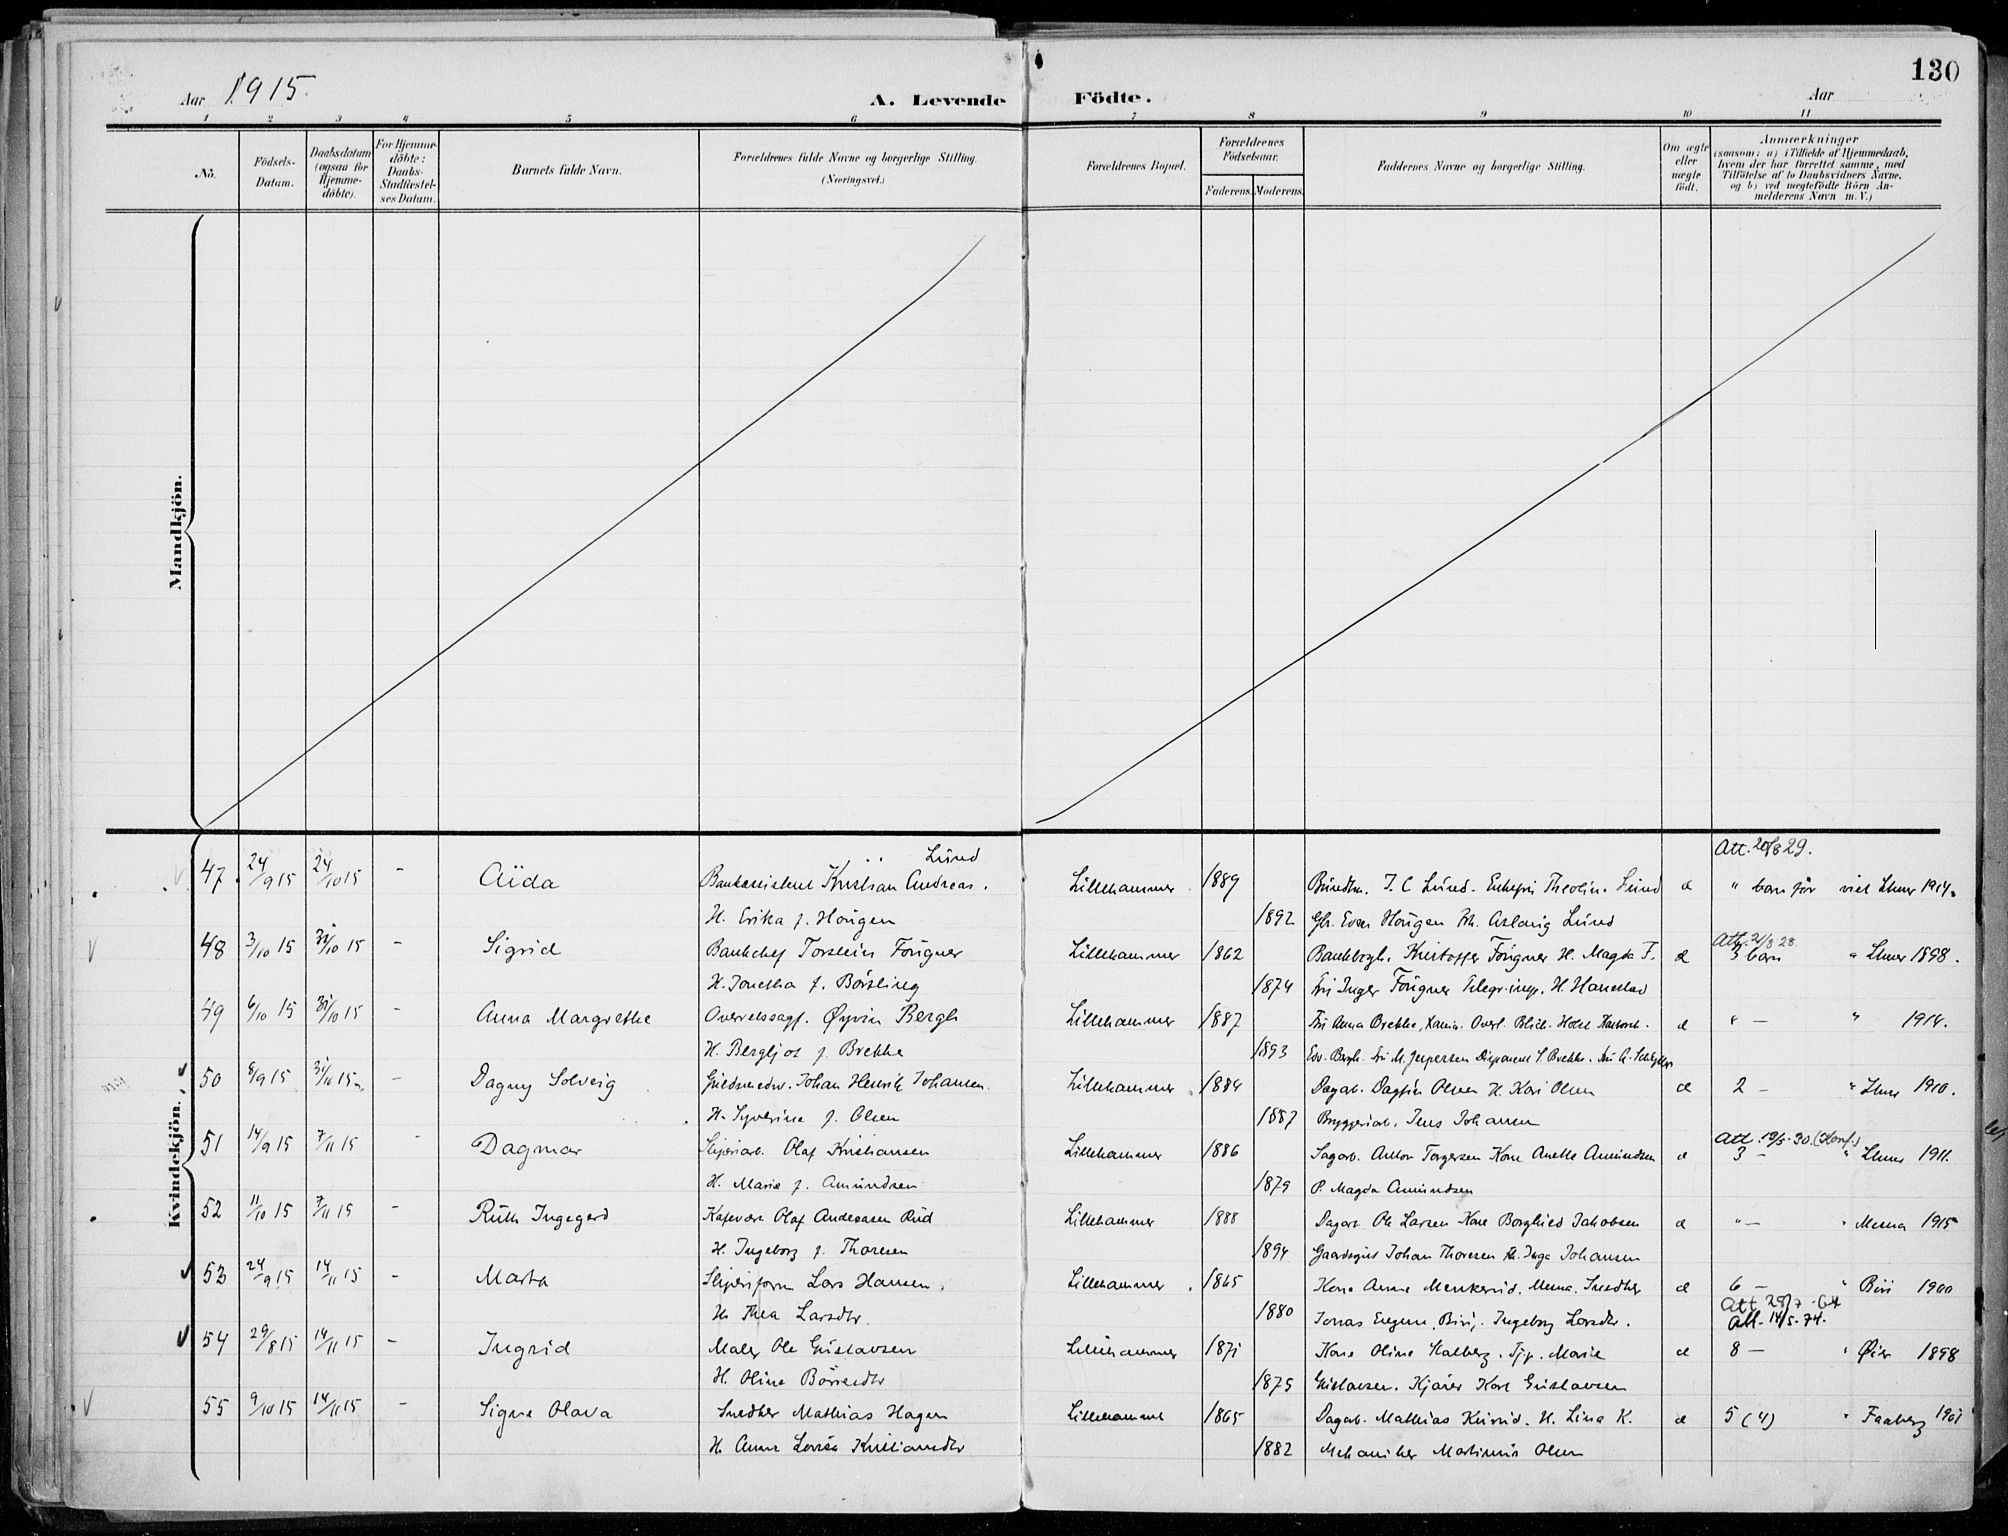 130
Aar 1915.
A. Levende Födte.
Aar
1 2 3 4 5 6 7 8 9 10 11
No. Födsels-Datum. Daabsdatum (ogsaa for Hjemme-döbte). For Hjemme-döbte: Daabs-Stadfæstel-ses Datum. Barnets fulde Navn. Forældrenes fulde Navne og borgerlige Stilling. (Næringsvei.) Forældrenes Bopæl. Forældrenes Födselsaar. Faderens. Moderens. Faddernes Navne og borgerlige Stilling. Om ægte eller uægte födt. Anmærkninger (saasom: a) i Tilfælde af Hjemmedaab, hvem der har forrettet samme, med Tilföielse af to Daabsvidners Navne, og b) ved uegtefödte Börn An-melderens Navn m. V.)
Mandkjön.
Kvindekjön.
Lund Att. 20/8 29.
47 24/9 15 24/10 15 - Aïda Bankassistent Kristian Andreas Lillehammer 1889 J. C. Lund. Enkefru Lund æ " barn før viet Lhmr 1914.
H. Erika f. Hougen 1892 Hougen Frk. Aslaug Lund
Att. 21/8 28.
48 3/10 15 31/10 15 - Sigrid Bankchef Torstein Fougner Lillehammer 1862 Kristoffer Fougner H. Magda F. æ 3 barn " Lhmr 1898.
H. Jonetha f. Børsting 1874 Fru Inger Fougner H. Hanestad
49 6/10 15 31/10 15 - Anna Margrethe Overretssagf. Øyvin Bergh Lillehammer 1887 Fru Anna Brekke, æ " - " 1914.
H. Bergljot f. Brekke 1893 Edv. Bergh. Fru M. Jespersen Disponent S. Brekke.
50 8/9 15 31/10 15 - Dagny Solveig Johan Henrik Johansen Lillehammer 1884 Dagarb. Dagfin Olsen H. Kari Olsen æ 2 - " Lhmr 1910.
H. Syverine f. Olsen 1887 Bryggeriarb. Jens Johansen
Att. 19/5-30. (Konf.)
51 14/9 15 7/11 15 - Dagmar Sliperiarb. Olaf Kristiansen Lillehammer 1886 Sagarb. Anton Torgersen Kone Anette Amundsen æ 3 - " Lhmr 1911.
H. Marie f. Amundsen 1879 P. Magda Amundsen
52 11/10 15 7/11 15 - Ruth Ingegerd Olaf Andreasen Rud Lillehammer 1888 Dagarb. Ole Larsen Kone Borghild Jakobsen æ " - " Mesna 1915
H. Ingeborg f. Thoresen 1894 Johan Thoresen Inga Johansen
53 24/9 15 14/11 15 - Marta Sliperiform. Lars Hansen. Lillehammer 1865 Kone Anne æ 6 - " Biri 1900
H. Thea Larsdtr. 1880 Jonas Engum, Biri, Ingeborg Larsdtr.
Att 29/7-64
Att. 14/5-74.
54 29/8 15 14/11 15 - Ingrid Maler Ole Gustavsen Lillehammer 1871 Kone Oline Halberg. Tjp. Marie æ 8 - " Øier 1898
H. Oline 1875 Gustavsen. Kjører Karl Gustavsen
55 9/10 15 14/11 15 - Signe Olava Snedker Mathias Hagen Lillehammer 1865 Dagarb. Mathias H. Lina K. æ 5 (4) " Faaberg 1901
H. Anne Lovise Kristiansdtr 1882 Mekaniker Martinius Olsen